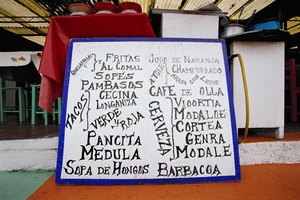 QUESADILLAS
FRITAS
AL COMAL
SOPES
PAMBASOS
CECINA
LONGANIZA
VERDE
Y ROJA
TACO
PANCITA
MEDULA
SOPA DE HONGOS
JUGO DE NARANJA
CHAMPURRADO
ATOLE
ARROS CON LECHE
CAFE DE OLLA
CERVEZA
VICORTIA
MODALOE
CORTEA
GENRA
MODALE
BARBACOA